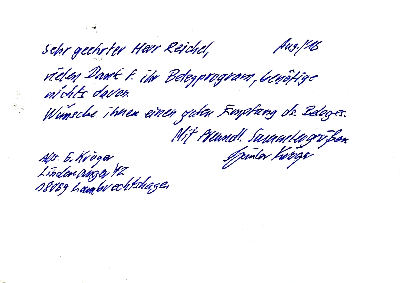 Sehr geehrter Herr Reichel,
vielen Dank f. ihr Belegprogram, benötige
nichts davon
Wünsche ihnen einen guten Empfang ds. Beleges.
Mit freundl. Sammlergrüßen
Günter Kröger
Abs. G. Kröger
Lindenanger 42
18069 Lambrechtshagen